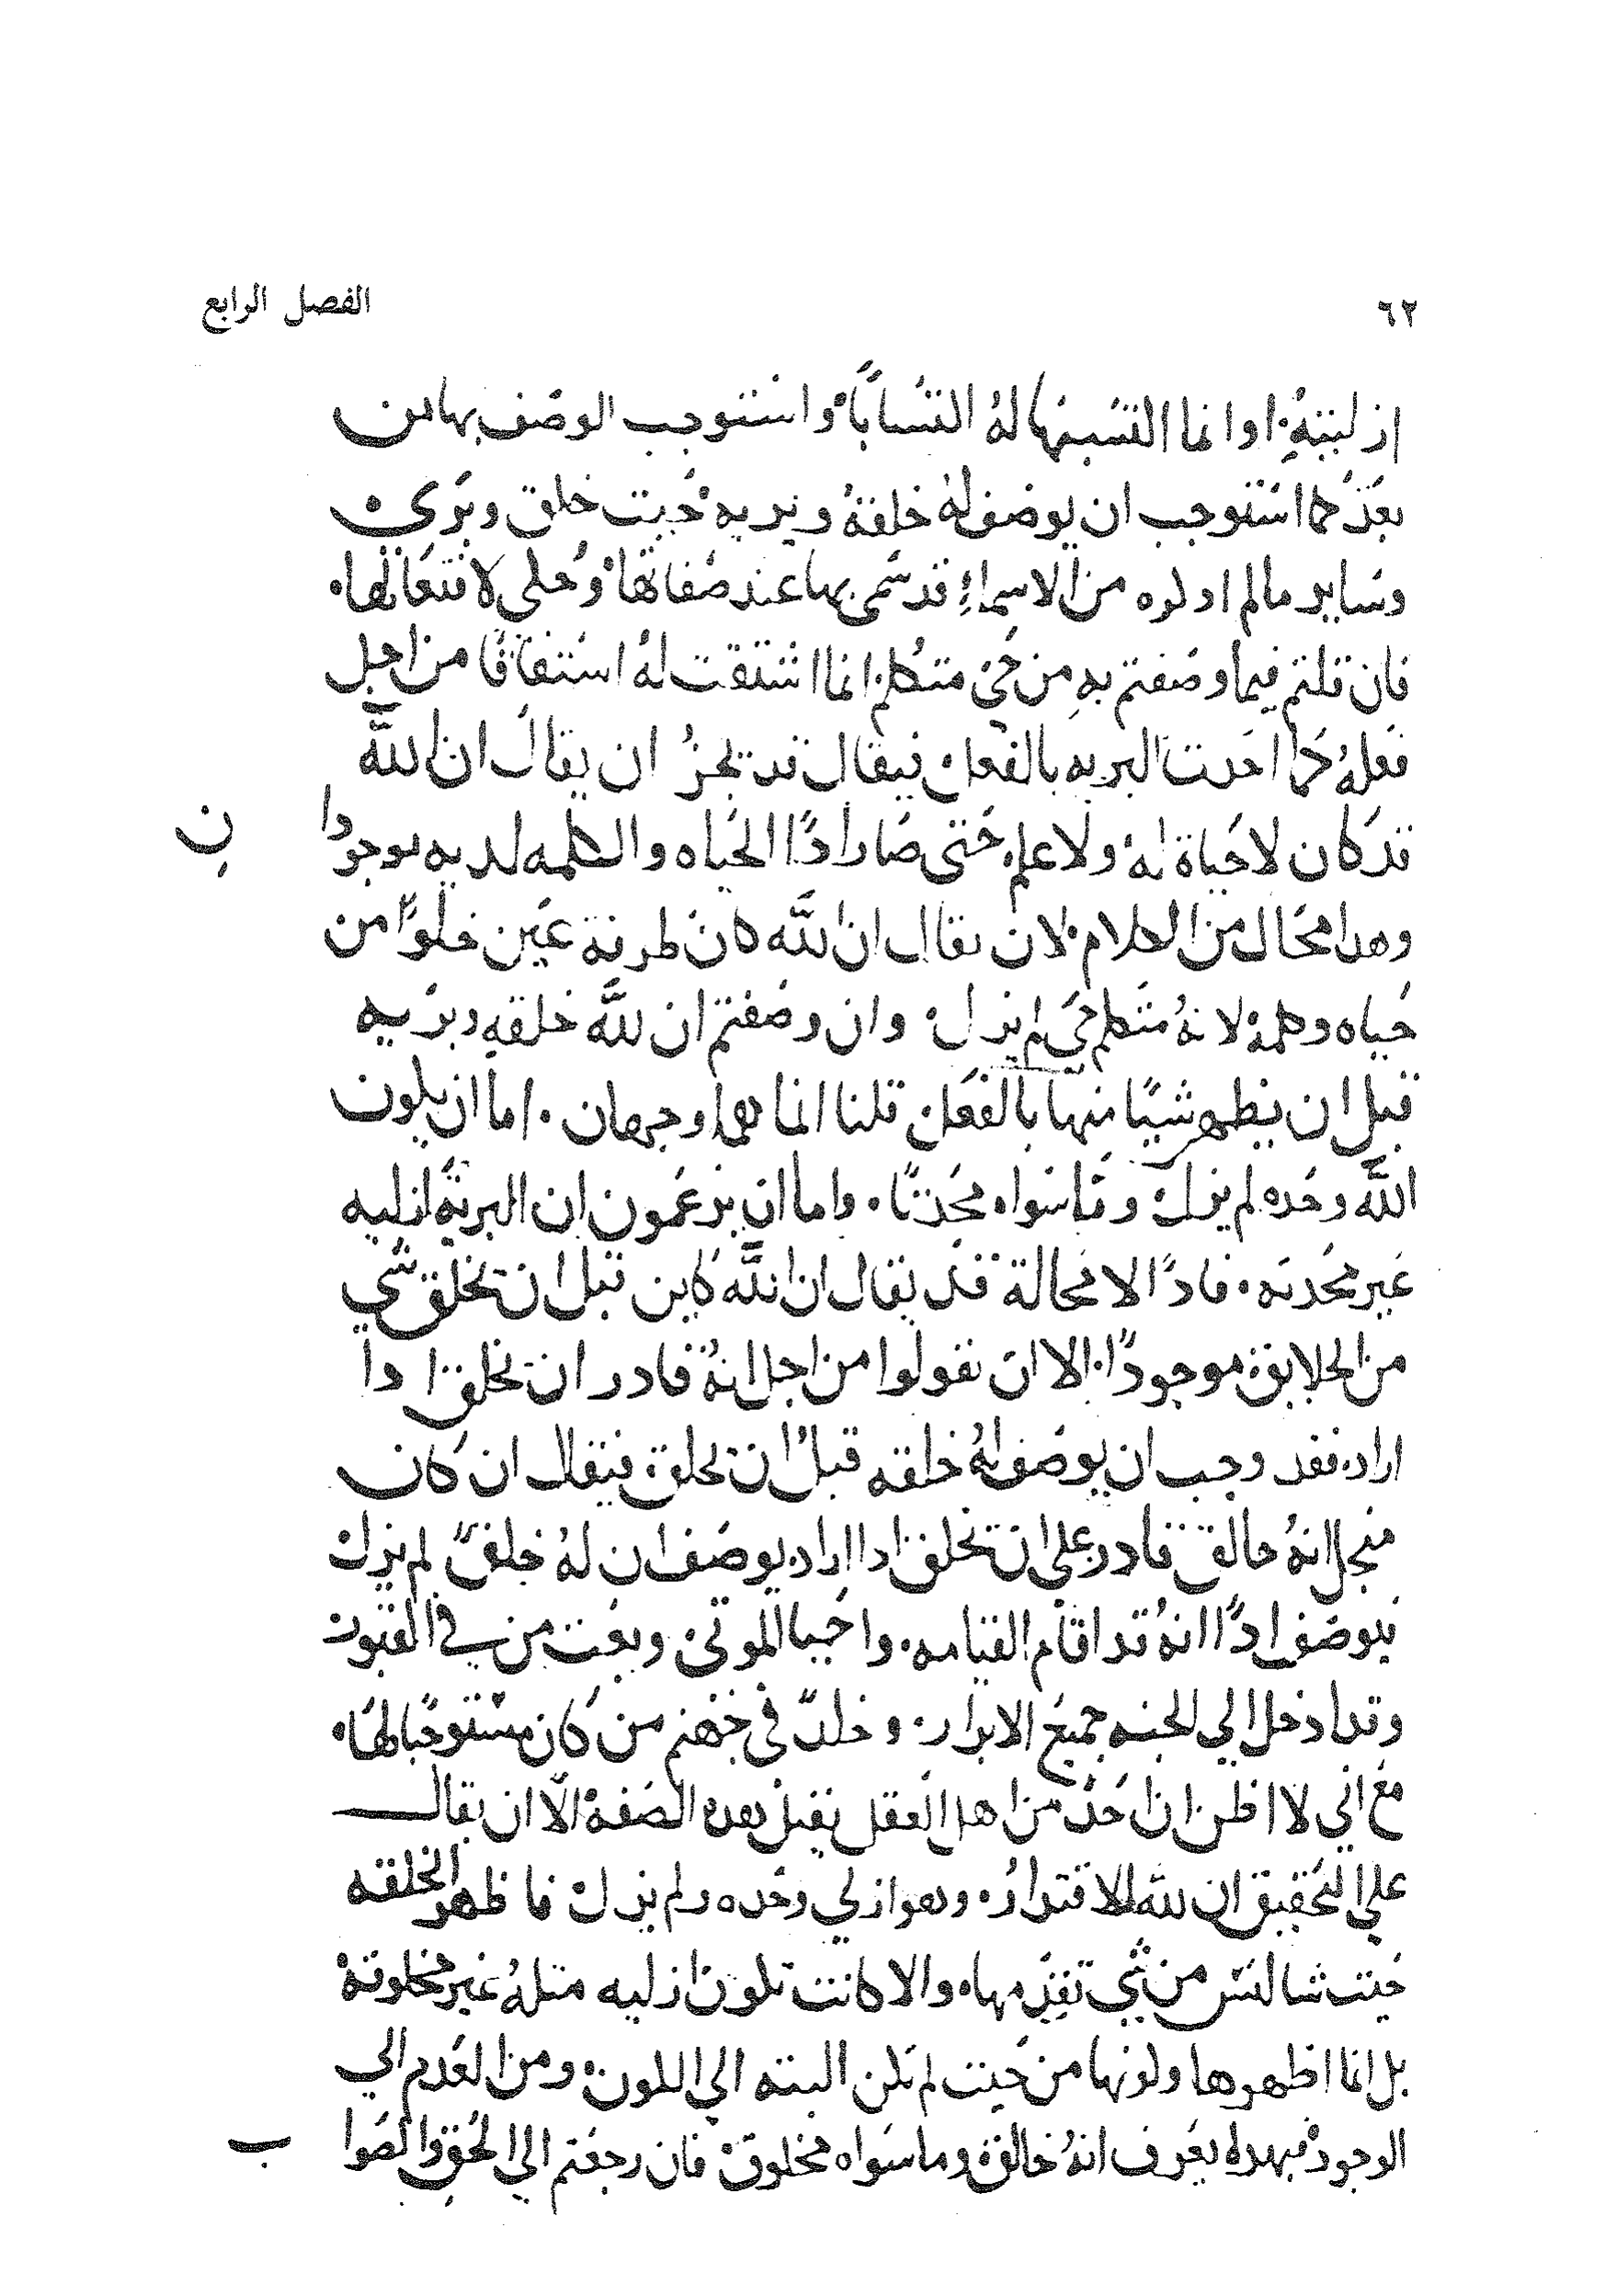 ٦٢ الفصل الرابع
ازليته. او انما اكتسبها له اكتسابًا واستوجب الوصف بها من
بعد كما استوجب ان يوصف له خليقة وبرية حيث خلق وبرى
وساير مالم ادكره من الاسماء قد سمى بها عند صفاتها وحلي لافتعالها.
فان قلتم فيما وصفتم به من حي متكلم. انما اشتقت له اشتقاقًا من اجل
فعله كما احدث البريه بالفعل. فيقال قد يجز ان يقال ان الله
قد كان لا حياة له ولا علم. حتى صار ادًا الحياه والكلمه لديه موجودا ن
وهدا محال من الكلام. لان يقال ان الله كان طرفة عين خلوًا من
حياه وكلمة لانهُ متكلم حي لم يزل. وان وصفتم ان لله خليقه وبريه
قبل ان يظهر شيًا منها بالفعل. قلنا انما هما وجهان. اما ان يكون
الله وحده لم يزل. وما سواه محدثًا. واما ان يزعمون ان البرية ازليه
غير محدثه. فادًا لا محالة قد يقال ان الله كاين قبل ان يخلق شي
من الخلايق موجودًا. الا ان يقولوا من اجل انهُ قادر ان يخلق ادا
اراد. فقد وجب ان يوصف لهُ خليقه قبل ان يخلق. فيقال ان كان
منجل انهُ خالق قادر على ان يخلق ادا اراد. يوصف ان لهُ خلق لم يزل
فيوصف ادًا انهُ قد اقام القيامه. واحيا الموتى. وبعث من في القبور
وقد ادخل الي الجنه جميع الابرار. وخلد في جهنم من كان مستوجبًا لها.
مع اني لا اظن ان احد من اهل العقل يقبل بهده الصفة الّا ان يقال
علي التحقيق ان لله الاقتدار. وهو ازلي وحده ولم يزل. فاظهر الخليقه
حيث شا ليس من شي تقدمها. والا كانت تكون ازليه مثلهُ غير مخلوقة
بل انما اظهرها وكونها من حيث لم تكن البته الي الكون. ومن العدم الي
الوجود فبهدا يعرف انهُ خالق. وما سواه مخلوق. فان رجعتم الي الحق والصوا ب